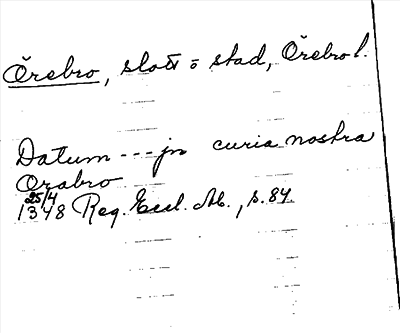 Örebro, slott o stad, Örebro l.
Datum --- jn curia nostra
Orabro
25/4
1348 Reg. Eccl. Ab., s. 84